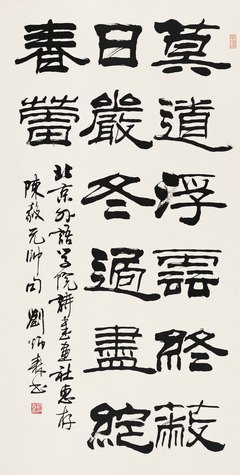 莫道浮雲終蔽
日嚴冬過盡綻
春蕾
北京外語学院書畫社惠存
陳毅元帥句 劉炳森书